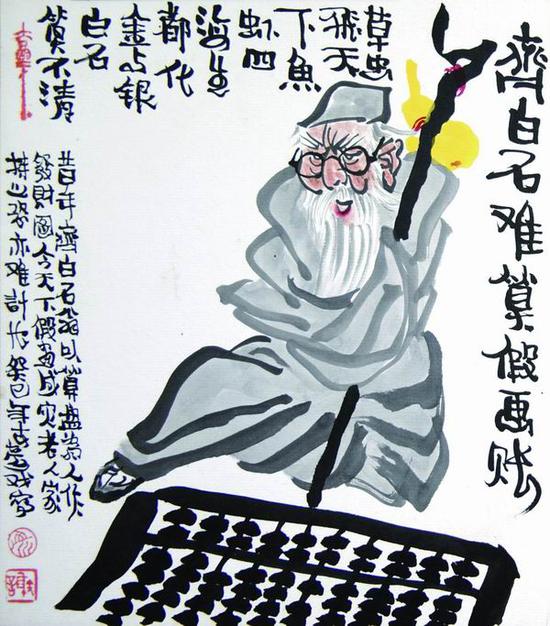 齊白石难算假画账
草虫
飛天
下魚
虾四
海生
都化
金与银
白石
算不清
昔年齊白石翁以算盘为人作
發財圖今天下假画成灾老人家
持此恐亦难計也癸巳年戏寫